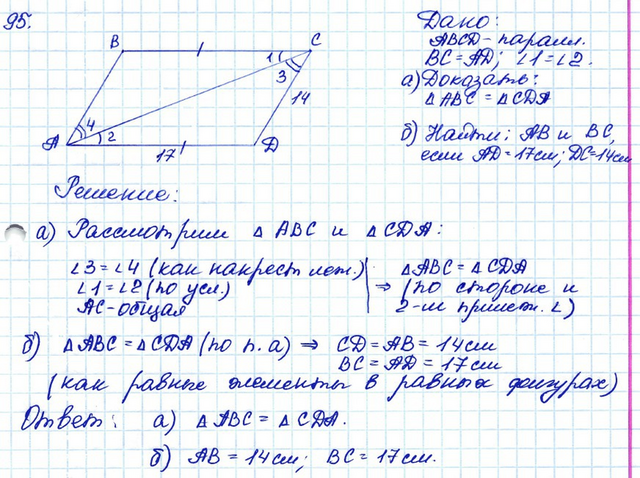 95.
B
C
1
3
14
4
2
A
17
D
Дано:
ABCD - паралл.
BC = AD; ∠1 = ∠2.
а) Доказать:
△ ABC = △ CDA
б) Найти: AB и BC,
если AD = 17см; DC = 14см
Решение:
а) Рассмотрим △ ABC и △ CDA:
∠3 = ∠4 (как накрест леж.)
∠1 = ∠2 (по усл.)
AC - общая
⇒ △ABC = △CDA
(по стороне и
2-м прилеж. ∠)
б) △ABC = △CDA (по п. а) ⇒ CD = AB = 14см
BC = AD = 17см
(как равные элементы в равных фигурах)
Ответ: а) △ ABC = △ CDA.
б) AB = 14см; BC = 17см.